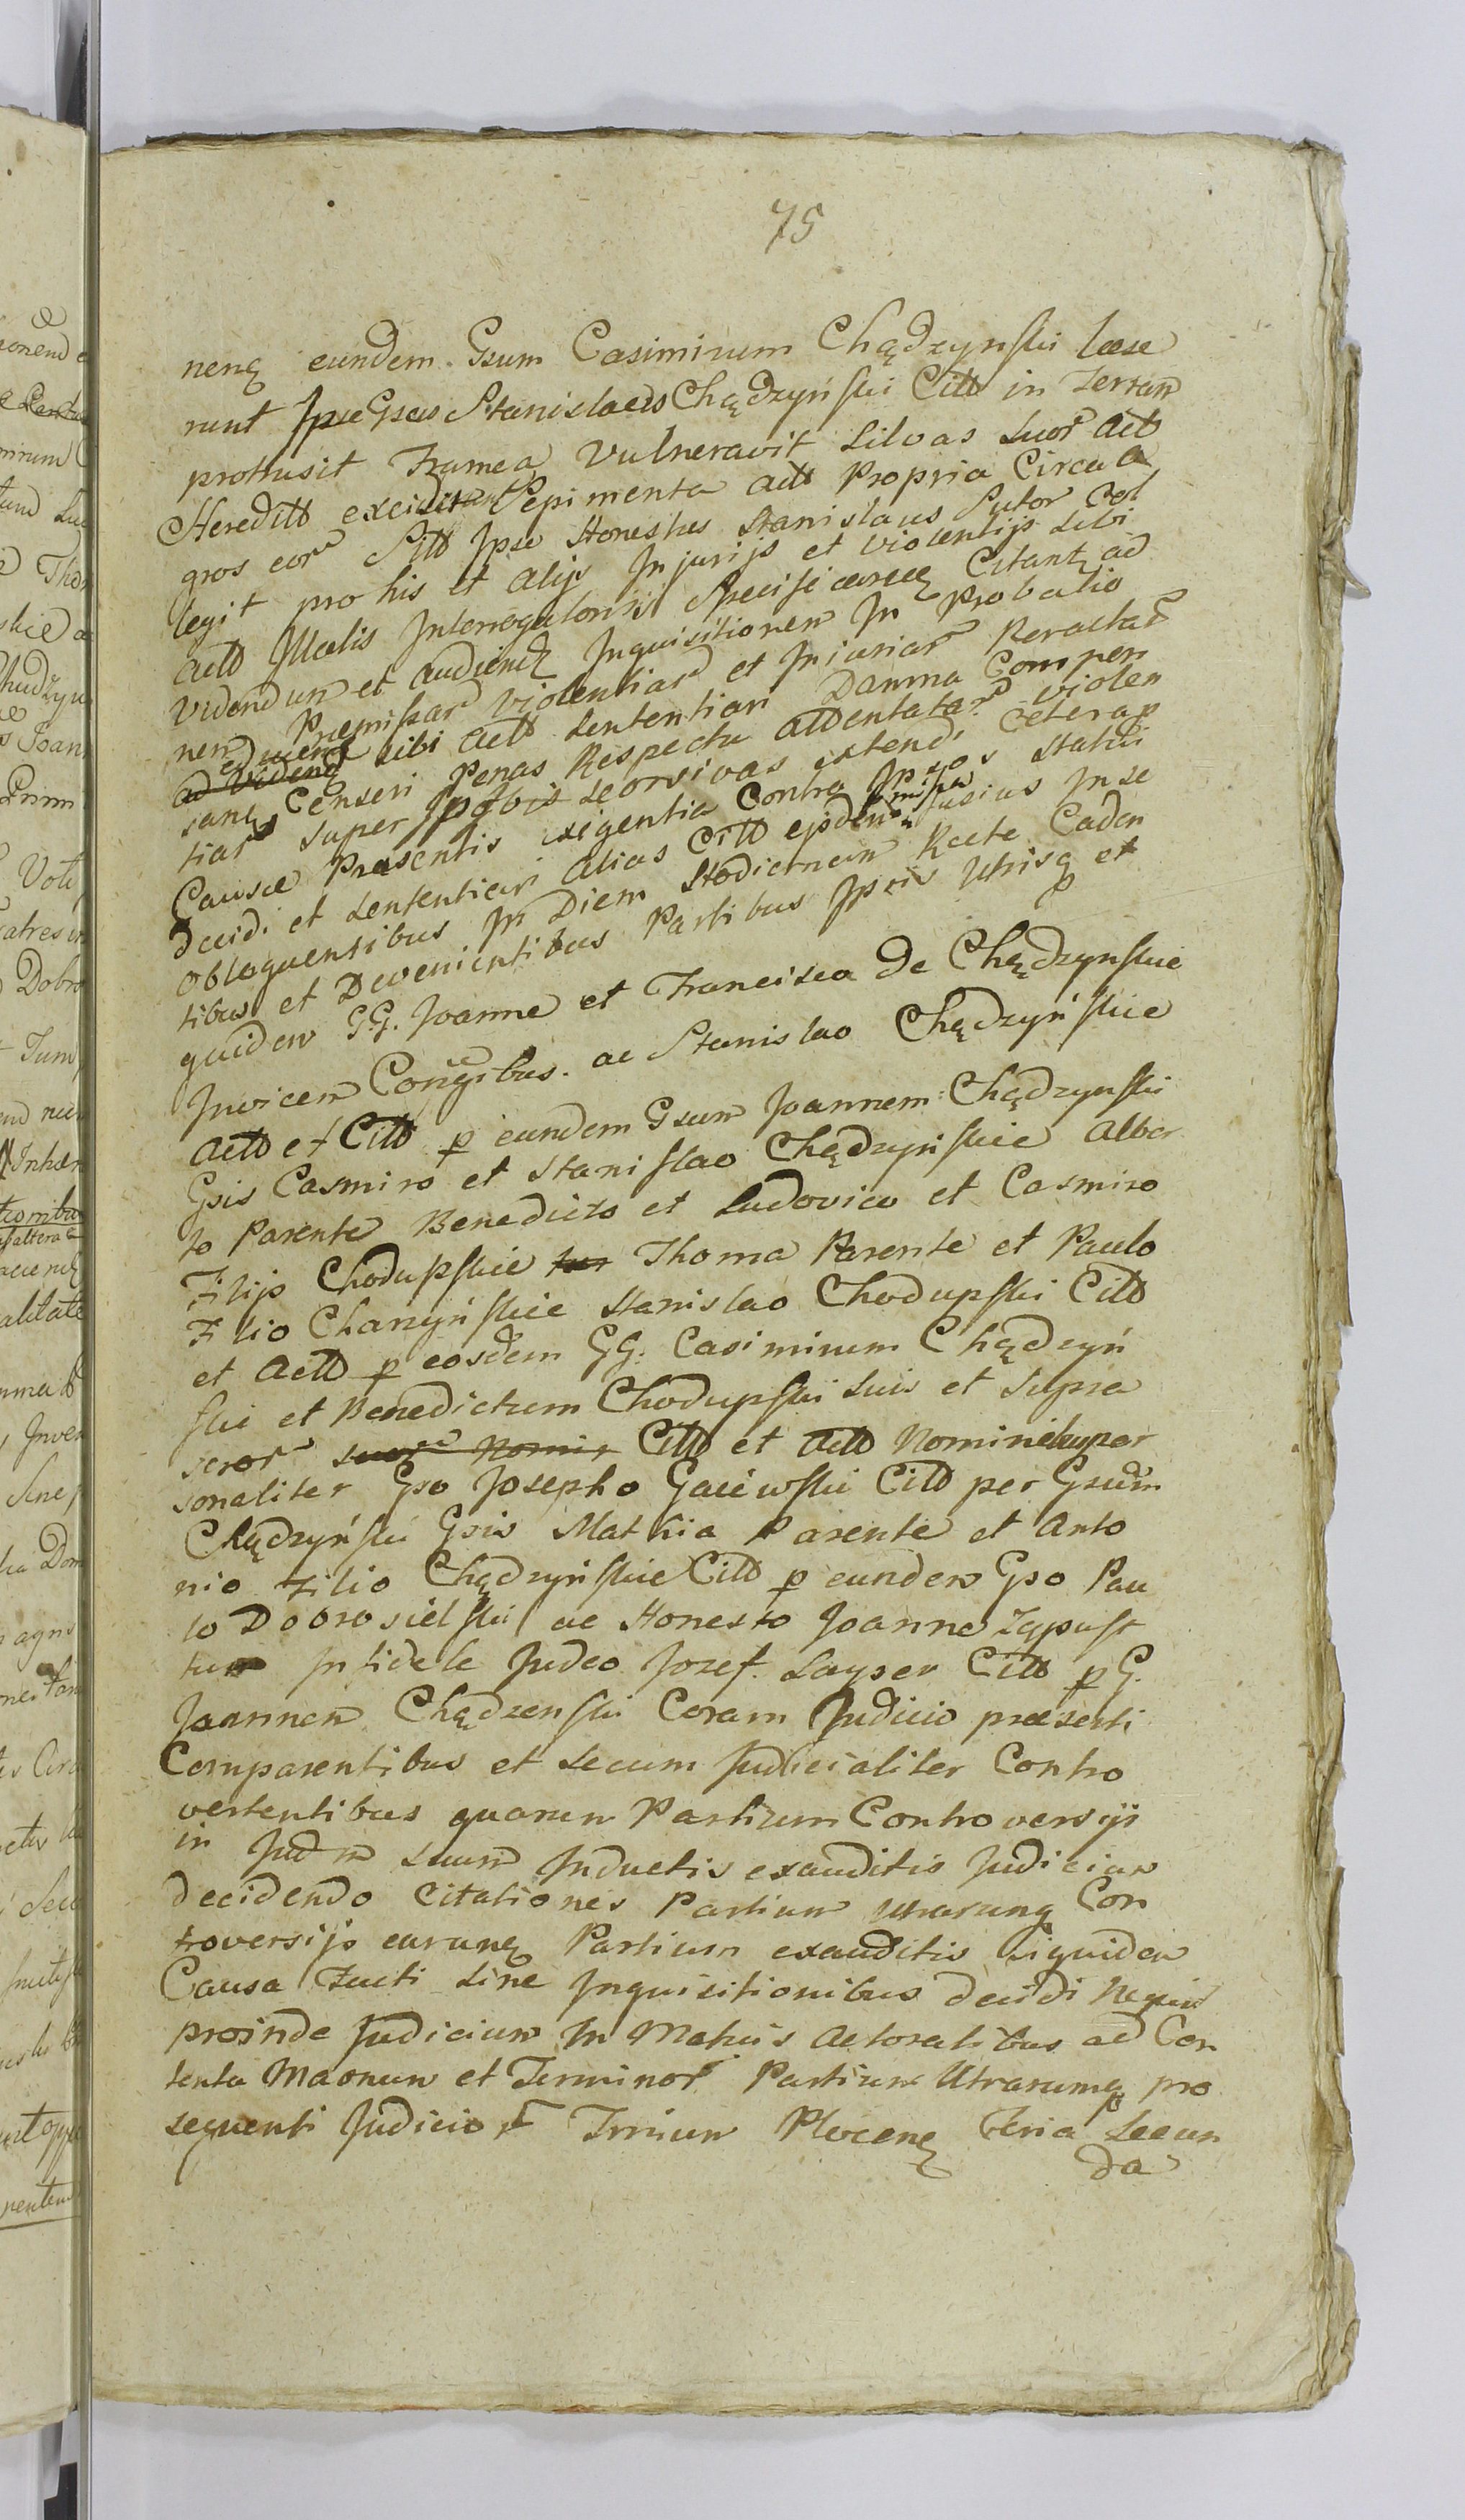 75
nenq eundem Gsum Casimirum Chądzynski læse
runt Ipse Gsus Stanislaus Chądzyński Citt in Terram
protrusit Framea Vulneravit Silvas suor Act
Hereditt excidit Sepimenta Act Propria Circa A
gros eor Sitt Ipse Honestus Stanislaus Sutor Col
legit pro his et alijs Injurijs et Violentijs sibi
Act Illatis Interrogatorijs Specificar Citant ad
Videndum et audiend Inquisitionem In Probatio
nem Præmissar Violentiar et Injuriar Peractar
ad Vidend sibi Act sententiari Damna Compen
sans Censeri Penas Respectu Attentatar Violen
tiar super seorsivas extend ceteraq
Causæ Præsentis exigentia Contra Ipsos Statui
decidi et sententiari alias Citt ejsdem fusius In se
obloquentibus In Diem Hodiernum Recte Caden
tibus et Devenientibus Partibus Ipsis Utrisq et
quidem GG. Joanne et Francisca de Chądzynskie
Invicem Congibus ac Stanislao Chądzyńskie
Act et Citt p eundem Gsum Joannem Chądzynski
Gsis Casmiro et Stanislao Chądzyńskie Alber
to Parente Benedicto et Ludovico et Casmiro
Filijs Chodupskie Thoma Parente et Paulo
Filio Chanzyńskie Stanislao Chodupski Citt
et Act p eosdem GG: Casimirum Chądzyń
ski et Benedictum Chodupski suis et supra
scror suor Nomir Citt et Act Nominibuper
sonaliter Gso Josepho Gaiewski Citt per Gsum
Chądzyński Gsis Mathia Parente et Anto
nio Filio Chądzyńskie Citt p eundem Gso Pau
lo Dobrosielski ac Honesto Joanne Zapust
Infidele Judeo Jozef Layser Citt p G.
Joannem Chądzenski Coram Judicio præsenti
Comparentibus et secum Judicialiter Contro
vertentibus quarum Partium Controversijs
in Judm suum Inductis exauditis Judicium
decidendo Citationes Partium Utrarunq Con
troversijs earunq Partium exauditis siquidem
Causa Facti Sine Inquisitionibus decidi Nequit
proinde Judicium In Actoratibus ad Con
tenta et Terminor Partium Utrarumq pro
sequenti Judicio Trrium Plocenq Feria Secun
da